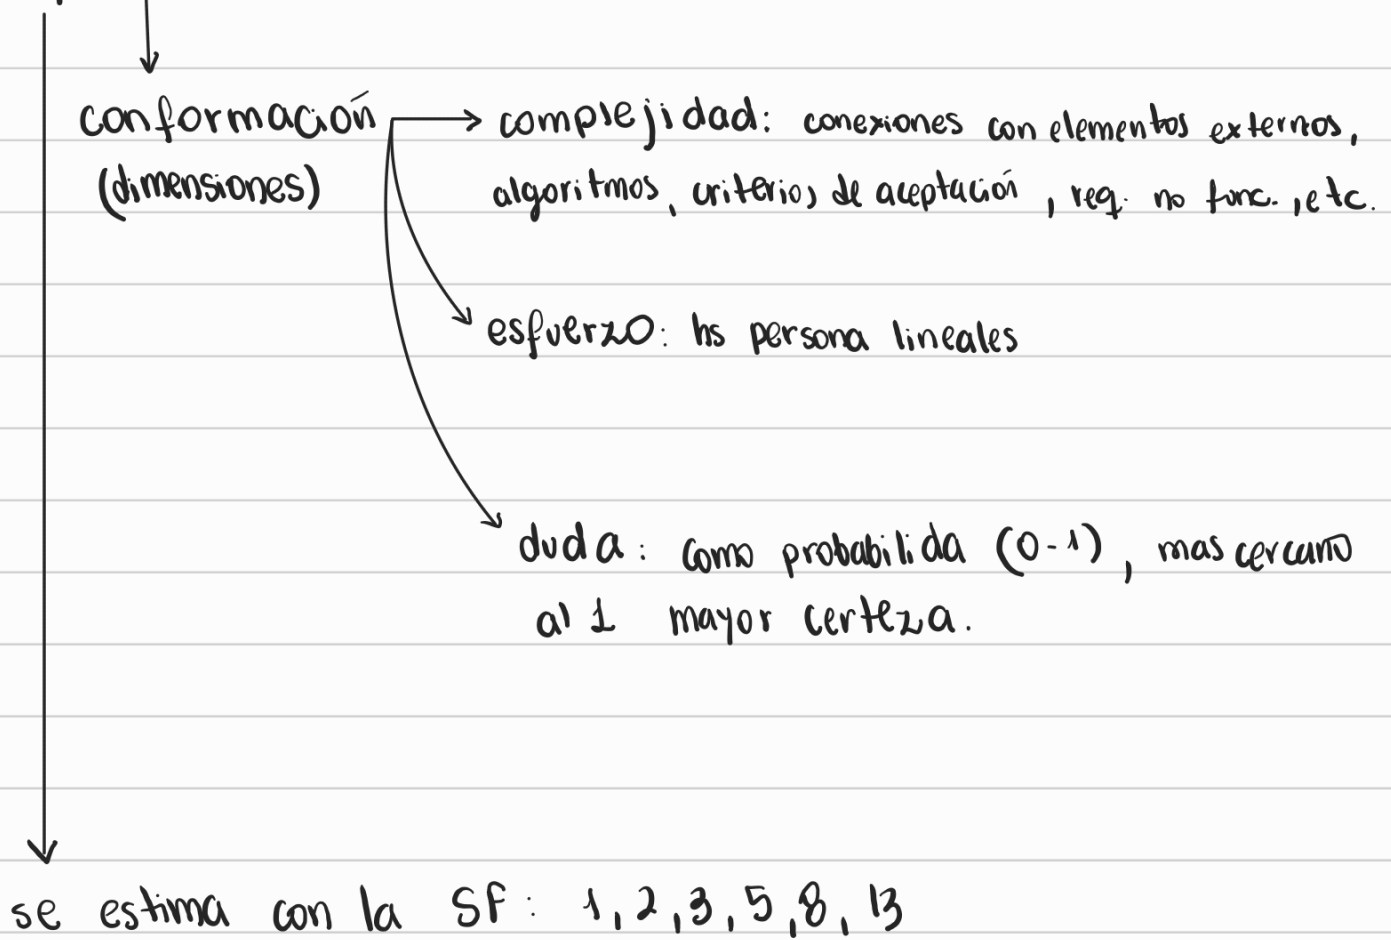 conformación
(dimensiones)
complejidad: conexiones con elementos externos,
algoritmos, criterios de aceptación, req. no func., etc.
esfuerzo: hs persona lineales
duda: como probabilida (0-1), mas cercano
al 1 mayor certeza.
se estima con la SF: 1, 2, 3, 5, 8, 13